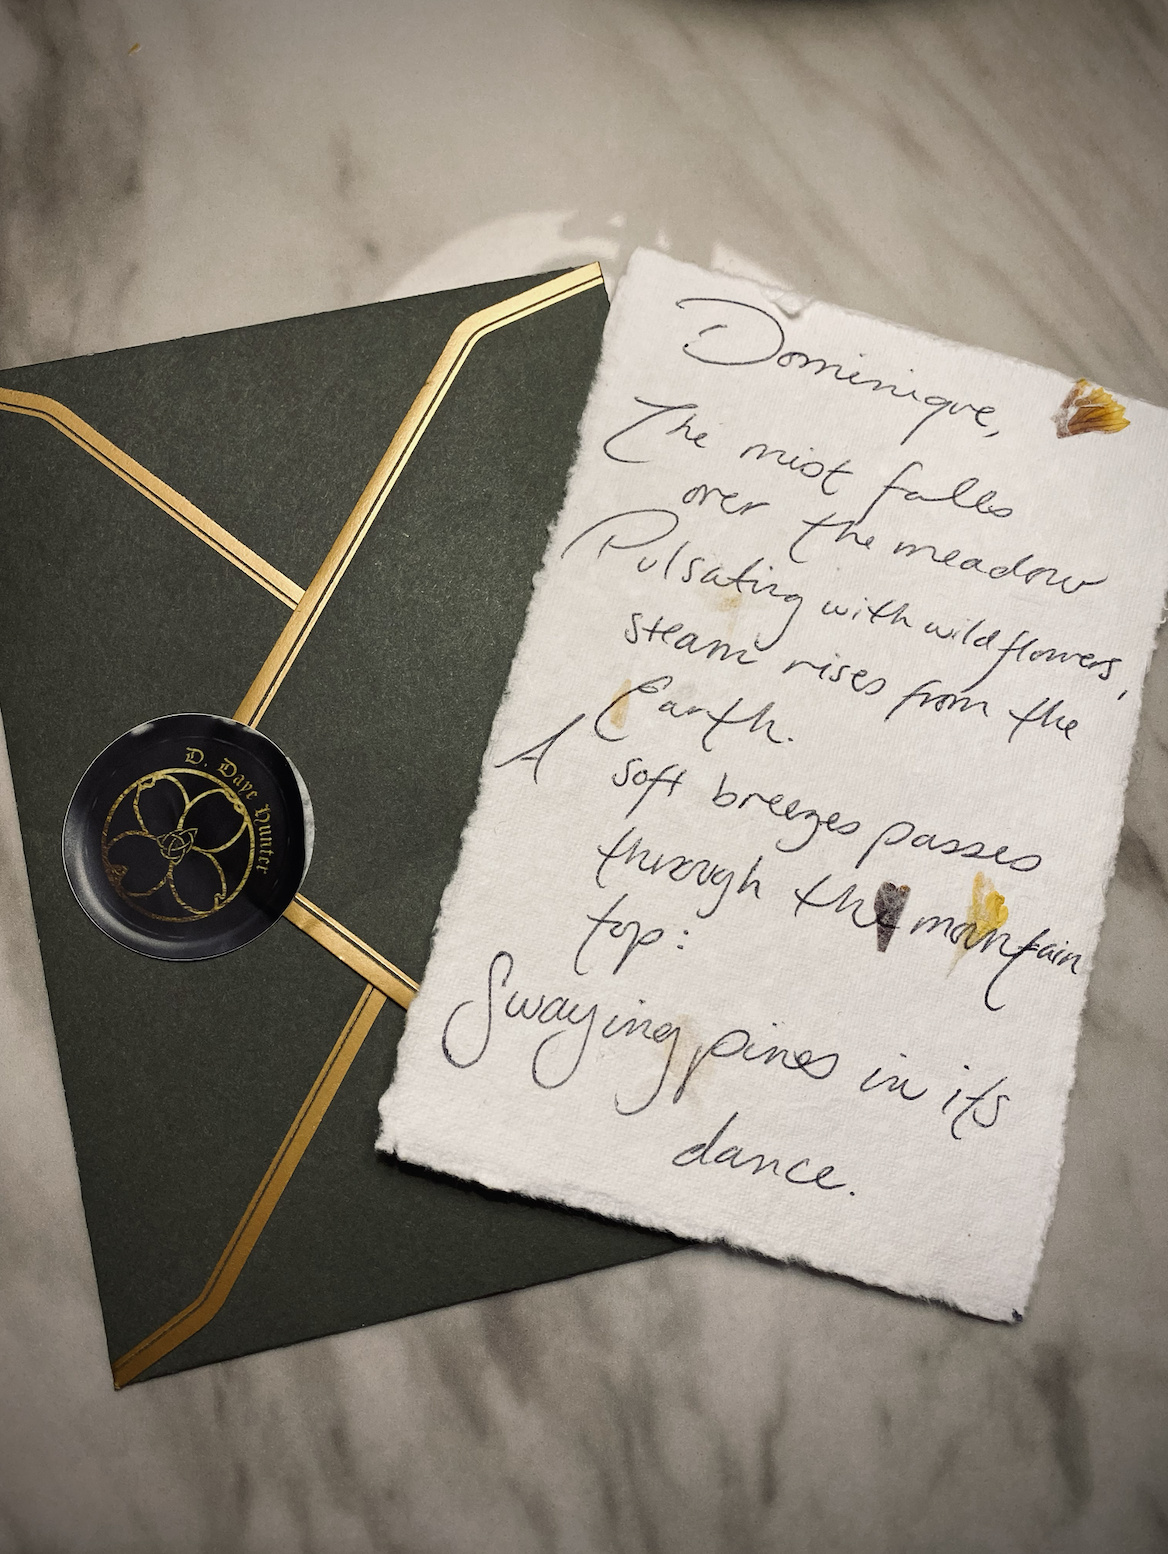 Dominique,
The mist falls
over the meadow
Pulsating with wildflowers,
steam rises from the
Earth.
A soft breezes passes
through the mountain
top:
Swaying pines in its
dance.
D. Daye Hunter